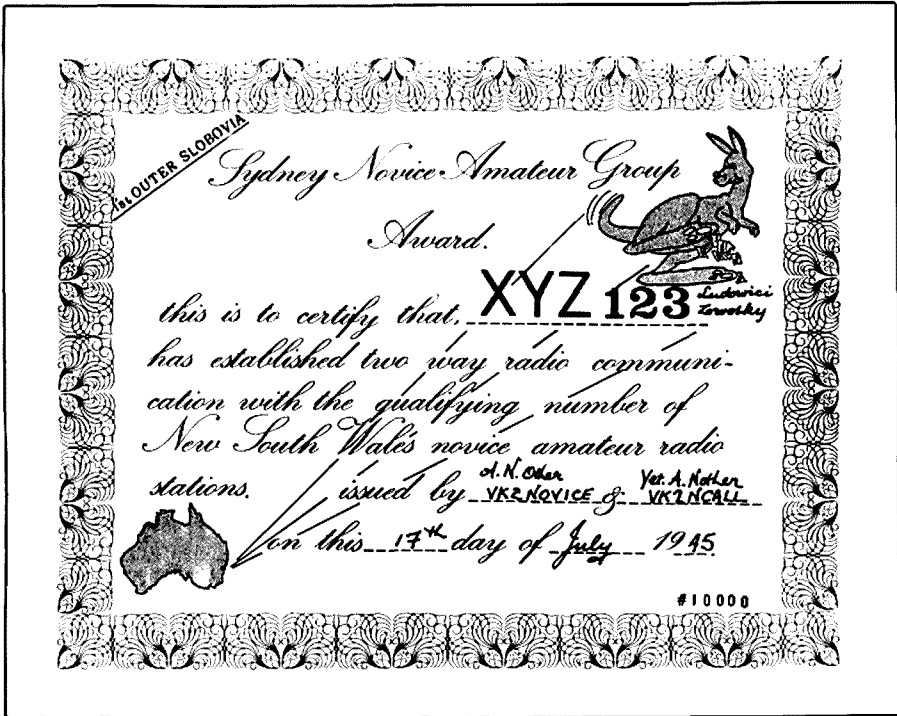 1st OUTER SLOBOVIA
Sydney Novice Amateur Group
Award.
this is to certify that, XYZ 123
Ludovici
has established two way radio communi-
cation with the qualifying number of
New South Wales novice amateur radio
stations. issued by A. N. Other VK2NOVICE & Yet. A. Nother VK2NCALL
on this 17th day of July 1945
#10000